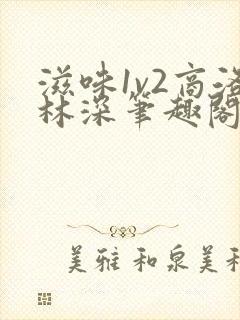 滋味1v2高洛
林深笔趣阁
美雅和泉美和